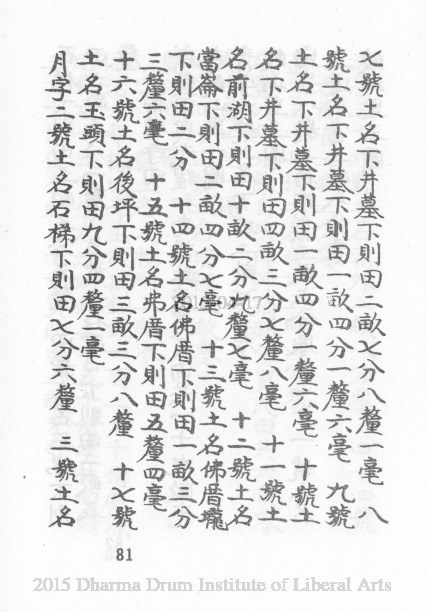 七號土名下井墓下則田二畝七分八釐一毫 八
號土名下井墓下則田一畝四分一釐六毫 九號
土名下井墓下則田一畝四分 釐六毫 十號土
名下井墓下則田四畝三分七釐八毫 十一號土
名前湖下則田十畝二分九釐七毫 十二號土名
當崙下則田二畝四分七毫 十三號土名佛厝壠
下則田二分 十四號土名佛厝下則田 畝三分
三釐六毫 十五號土名弗厝下則田五釐四毫
十六號土名後坪下則田三畝三分八釐 十七號
土名玉頭下則田九分四釐一毫
月字二號土名石梯下則田七分六釐 三號土名
81
2015 Dharma Drum Institute of Liberal Arts